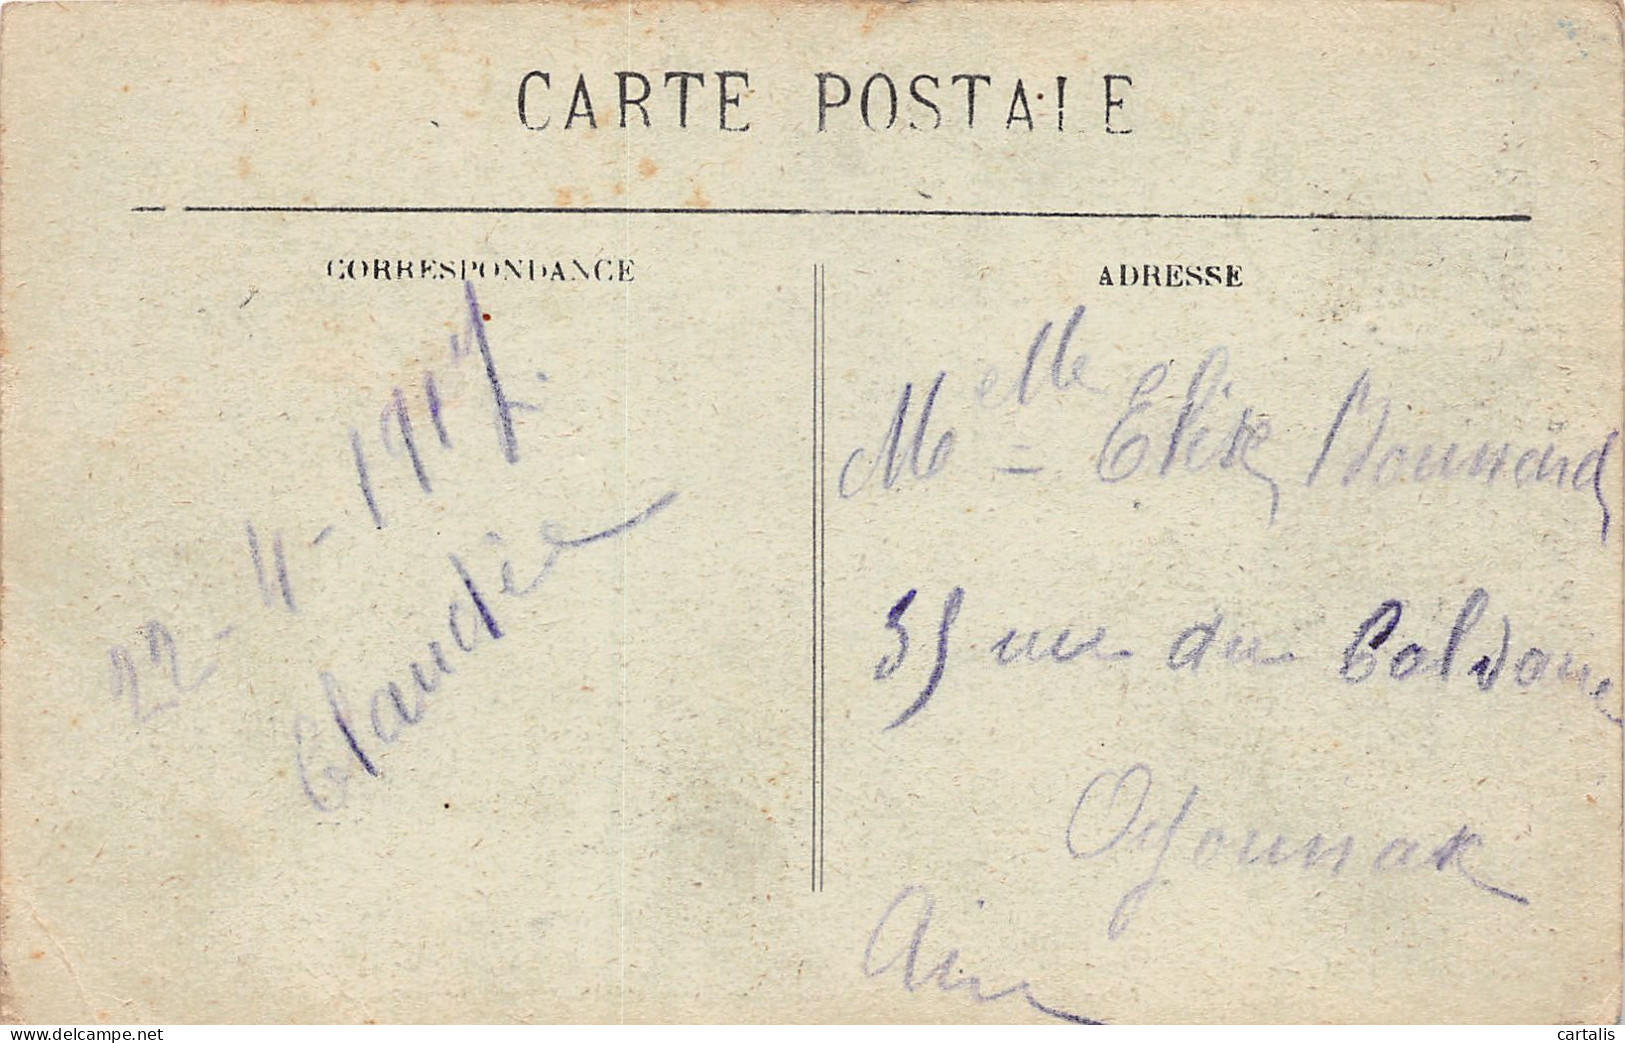 CARTE POSTALE
CORRESPONDANCE
22-4-1917.
Claudie
ADRESSE
Melle = Elise
35 rue du
Oyonnax
Ain
www.delcampe.net
cartalis